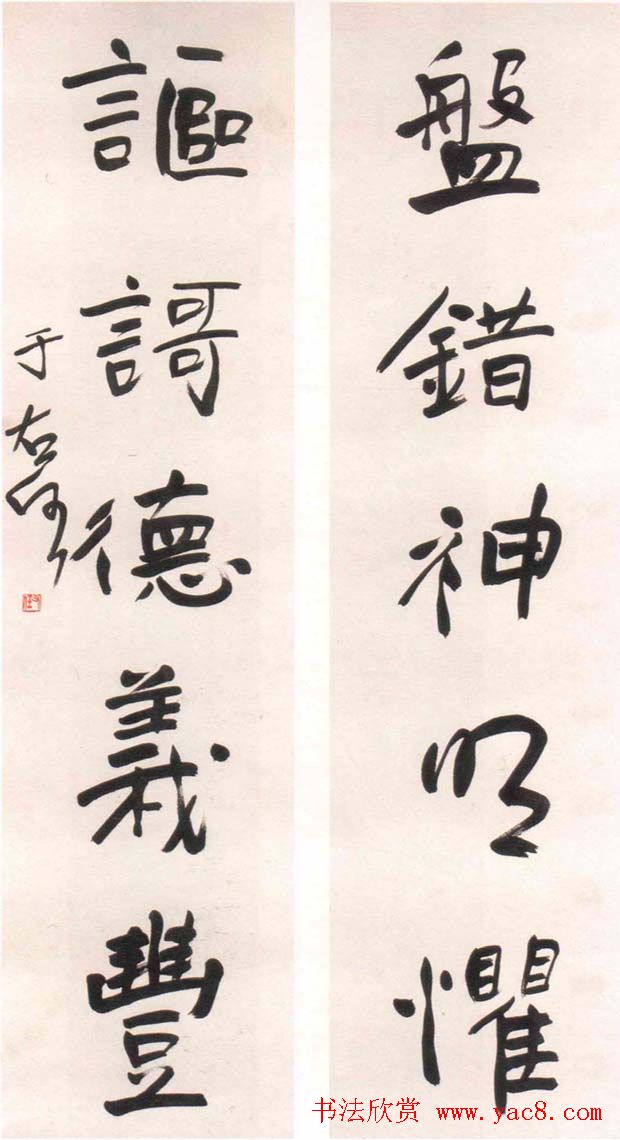 盤錯神明懼
謳謌德義豐
于右任
书法欣赏 www.yac8.com